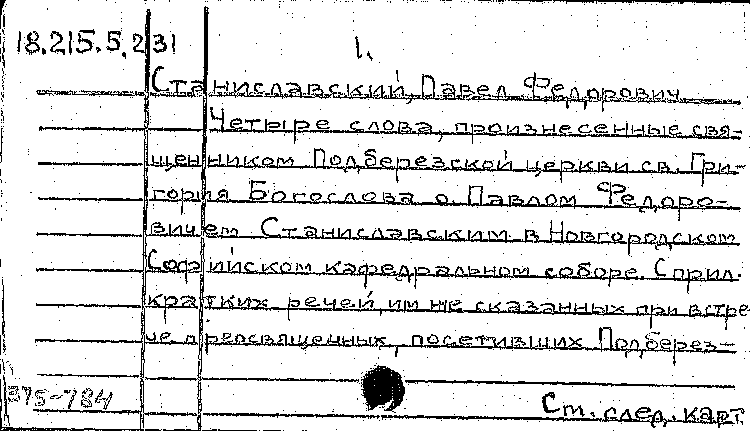 18.215.5.231
1.
Станиславский, Павел Федорович
Четыре слова, произнесенные свя-
щенником Подберезской церкви св. Гри-
гория Богослова о. Павлом Федоро-
вичем Станиславским в Новгородском
Софийском кафедральном соборе. С прил.
кратких речей, им же сказанных при встре-
че преосвященных, посетивших Подберез-
375-784
См. след. карт.